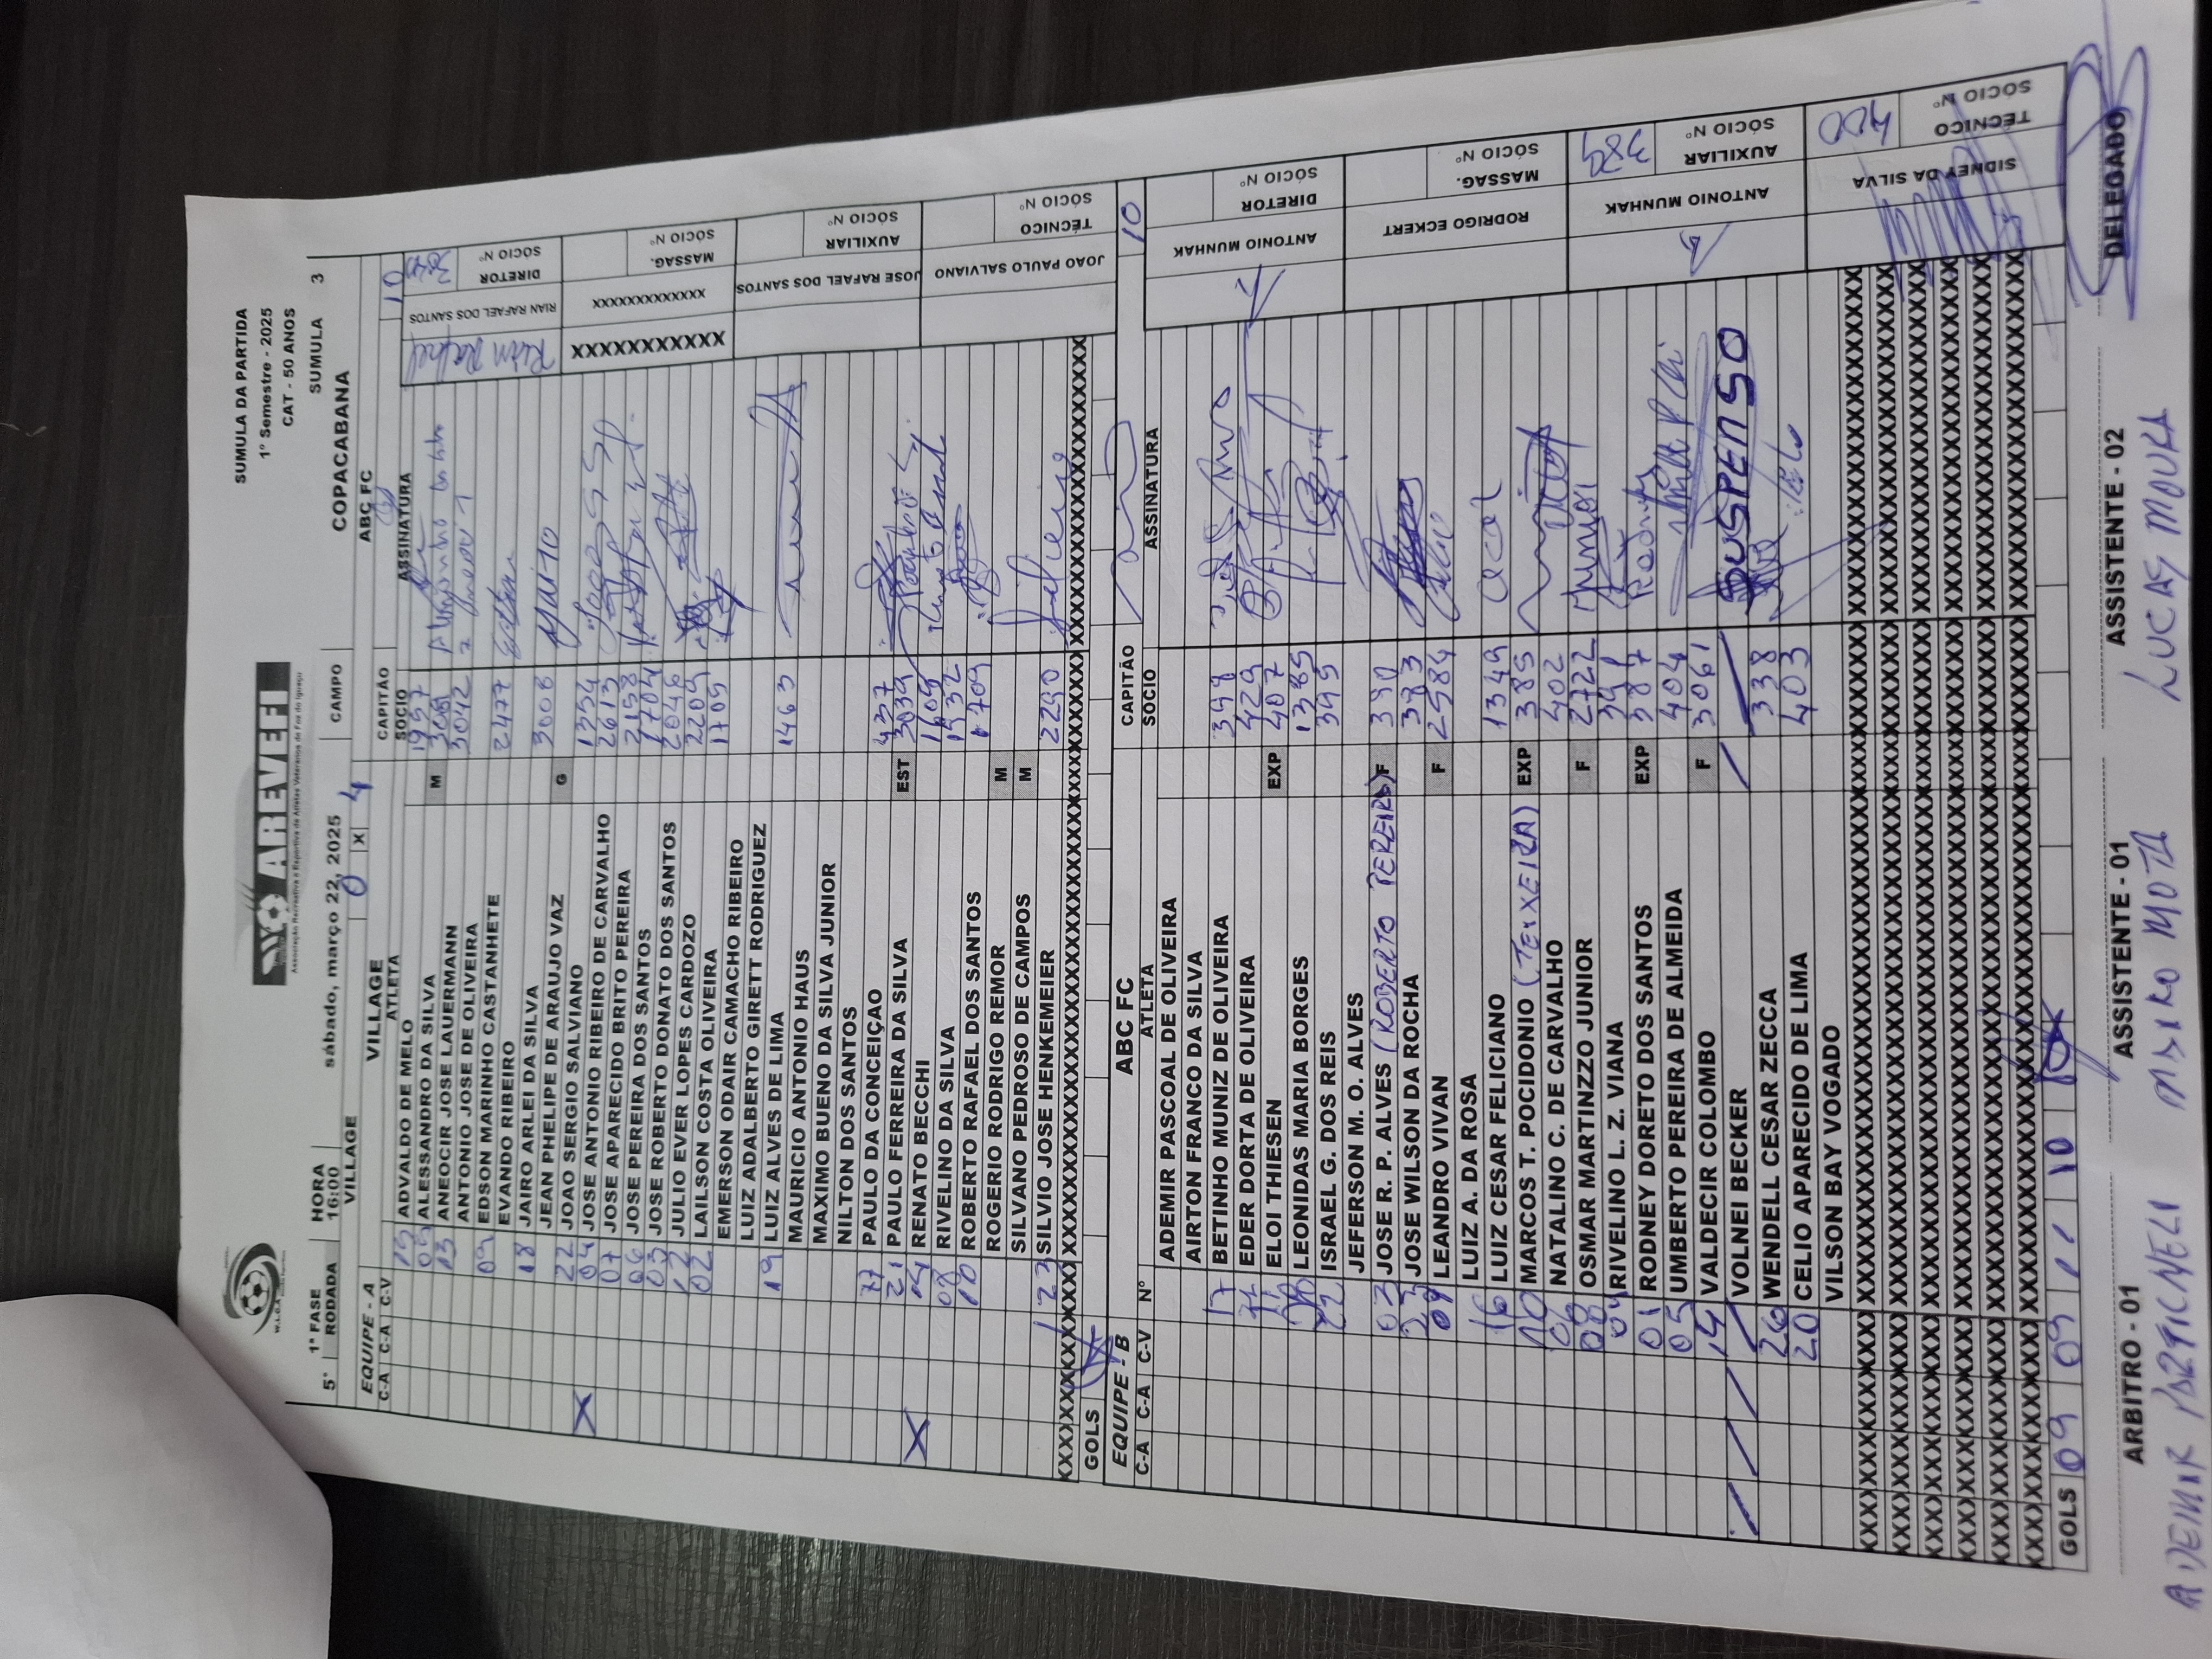 SUMULA DA PARTIDA
1º Semestre - 2025
CAT - 50 ANOS
W.L.C.A.
AREVEFI
Associação Recreativa e Esportiva de Atletas Veteranos de Foz do Iguaçu
1ª FASE HORA sábado, março 22, 2025 CAMPO COPACABANA SUMULA 3
5ª RODADA 16:00
VILLAGE 0 X 4 ABC FC
EQUIPE - A VILLAGE CAPITÃO 10
C-A C-A C-V ATLETA SOCIO ASSINATURA
19 ADVALDO DE MELO 1957
05 ALESSANDRO DA SILVA M
13 ANEOCIR JOSE LAUERMANN 3042
ANTONIO JOSE DE OLIVEIRA
09 EDSON MARINHO CASTANHETE 2477
EVANDO RIBEIRO
18 JAIRO ARLEI DA SILVA 3008
JEAN PHELIPE DE ARAUJO VAZ G
22 JOAO SERGIO SALVIANO 1354
X 04 JOSE ANTONIO RIBEIRO DE CARVALHO 2613
07 JOSE APARECIDO BRITO PEREIRA 2158
06 JOSE PEREIRA DOS SANTOS 1704
03 JOSE ROBERTO DONATO DOS SANTOS 2046
12 JULIO EVER LOPES CARDOZO 2209
02 LAILSON COSTA OLIVEIRA 1705
EMERSON ODAIR CAMACHO RIBEIRO
LUIZ ADALBERTO GIRETT RODRIGUEZ
19 LUIZ ALVES DE LIMA 1463
MAURICIO ANTONIO HAUS
MAXIMO BUENO DA SILVA JUNIOR
NILTON DOS SANTOS
77 PAULO DA CONCEIÇAO 437
21 PAULO FERREIRA DA SILVA EST 3039
X 14 RENATO BECCHI 1609
08 RIVELINO DA SILVA 1932
10 ROBERTO RAFAEL DOS SANTOS 1709
ROGERIO RODRIGO REMOR M
SILVANO PEDROSO DE CAMPOS M
23 SILVIO JOSE HENKEMEIER 2290
GOLS
Rian Rafael RIAN RAFAEL DOS SANTOS DIRETOR SÓCIO Nº
XXXXXXXXXXXX XXXXXXXXXXXXX MASSAG. SÓCIO Nº
JOSE RAFAEL DOS SANTOS AUXILIAR SÓCIO Nº
JOAO PAULO SALVIANO TÉCNICO SÓCIO Nº
EQUIPE - B ABC FC CAPITÃO 10
C-A C-A C-V Nº ATLETA SOCIO ASSINATURA
ADEMIR PASCOAL DE OLIVEIRA
AIRTON FRANCO DA SILVA
17 BETINHO MUNIZ DE OLIVEIRA 398
EDER DORTA DE OLIVEIRA 429
11 ELOI THIESEN EXP 407
LEONIDAS MARIA BORGES 1385
22 ISRAEL G. DOS REIS 395
JEFFERSON M. O. ALVES
03 JOSE R. P. ALVES (ROBERTO PEREIRA) F 390
23 JOSE WILSON DA ROCHA 383
07 LEANDRO VIVAN F 2584
LUIZ A. DA ROSA
16 LUIZ CESAR FELICIANO 1349
10 MARCOS T. POCIDONIO (TEIXEIRA) EXP 385
06 NATALINO C. DE CARVALHO 402
08 OSMAR MARTINZZO JUNIOR F 2722
09 RIVELINO L. Z. VIANA 391
01 RODNEY DORETO DOS SANTOS EXP 387 Rodney
05 UMBERTO PEREIRA DE ALMEIDA 404
14 VALDECIR COLOMBO F 3061
VOLNEI BECKER SUSPENSO
26 WENDELL CESAR ZECCA 338
20 CELIO APARECIDO DE LIMA 403
VILSON BAY VOGADO
GOLS 09 09 11 10
ANTONIO MUNHAK DIRETOR SÓCIO Nº
RODRIGO ECKERT MASSAG. SÓCIO Nº
ANTONIO MUNHAK AUXILIAR SÓCIO Nº 389
SIDNEY DA SILVA TÉCNICO SÓCIO Nº 400
ARBITRO - 01 ASSISTENTE - 01 ASSISTENTE - 02 DELEGADO
ADEMIR MAIKO MOTA LUCAS MOURA